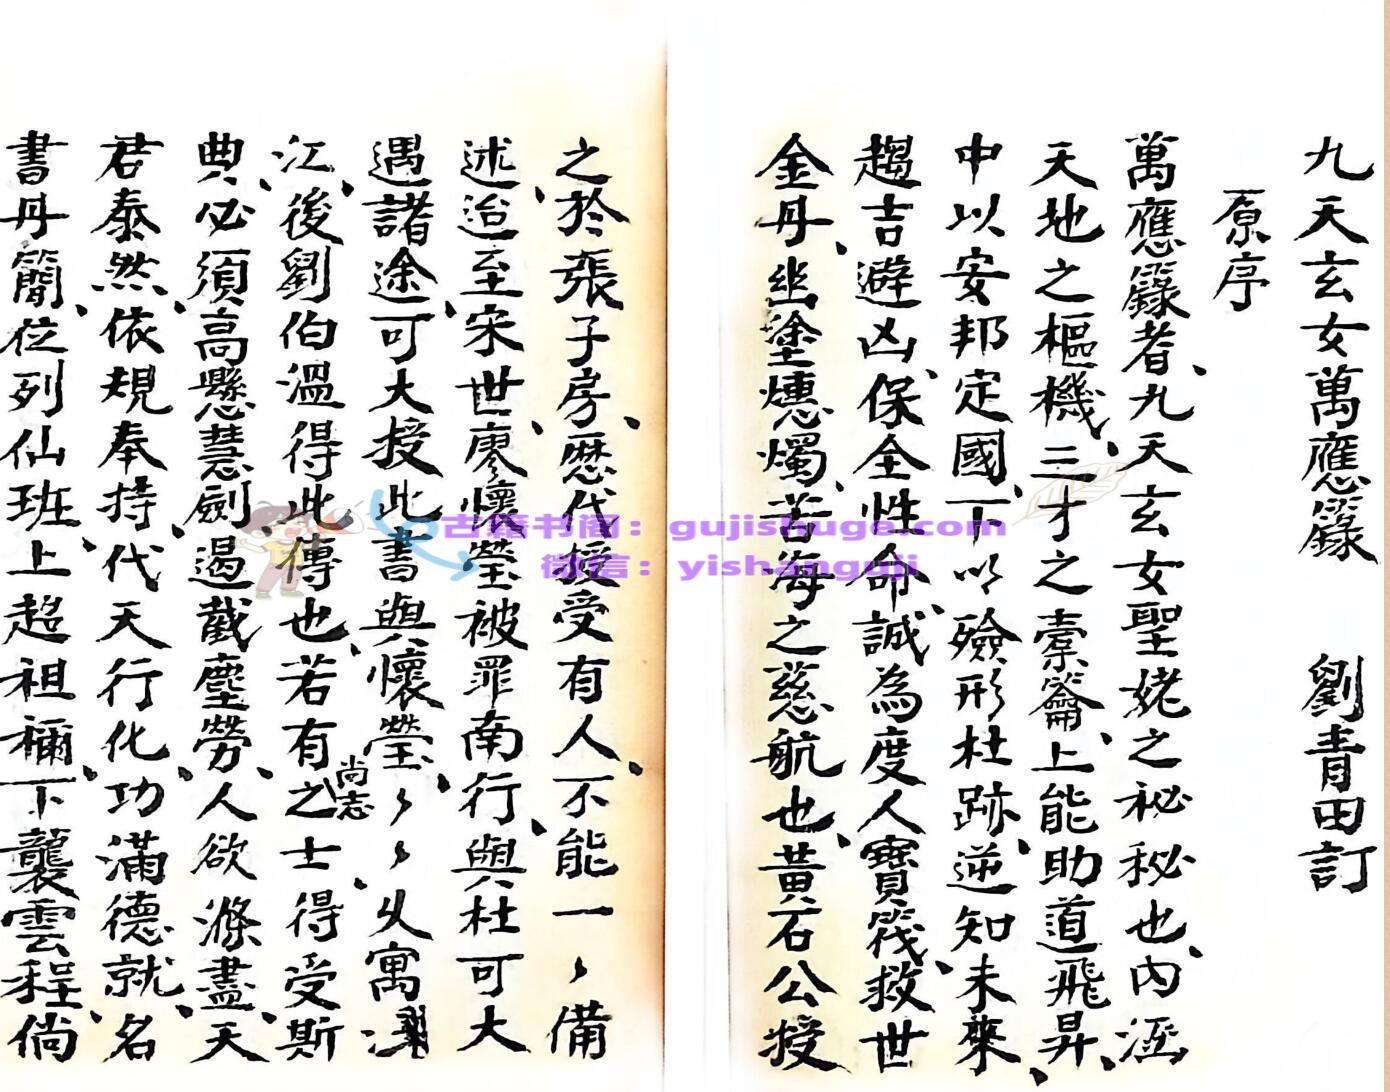 九天玄女萬應籙　劉青田訂
原序
萬應籙者、九天玄女聖姥之秘秘也、內涵
天地之樞機、三才之橐籥、上能助道飛昇、
中以安邦定國、下以殮形杜跡、逆知未來、
趨吉避凶、保全性命、誠為度人寶筏、救世
金丹、幽塗燻燭、苦海之慈航也、黃石公授
之於張子房、歷代授受有人、不能一〻備
述、迨至宋世、廖懷瑩被罪南行、與杜可大
遇諸途、可大授此書與懷瑩、〻〻又寓
江、後劉伯溫得此傳也、若有尚志之士、得受斯
典、必須高懸慧劍、遏截塵勞、人欲滌盡、天
君泰然、依規奉持、代天行化、功滿德就、名
書丹簡、位列仙班、上超祖禰、下襲雲程、倘
古籍书阁：gujishuge.com
微信：yishanguji